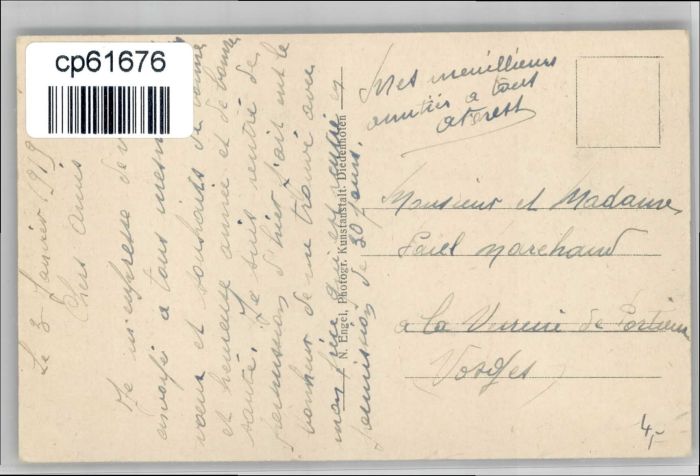 cp61676
Le 3 Janvier 1919
Chers Amis
Je m'empresse de v
envoyer a tous mes m
vœux et souhaits de bonne
et heureuse année et de bonne
santé. Je suis rentré de
permission d'hier j'ait eut le
bonheur de me trouvé avec
mon qui est rentré en
permission de 30 jours.
N. Engel, Photogr. Kunstanstalt. Diedenhofen
Mes meuillieurs
amitiés a tous
Monsieur et Madame
Paiel Marchand
a la de Portieux
(Vosges)
4,-